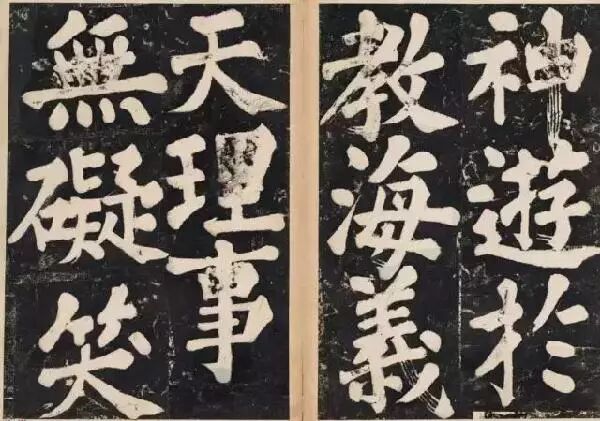 神遊於
教海義
天理事
無礙笑